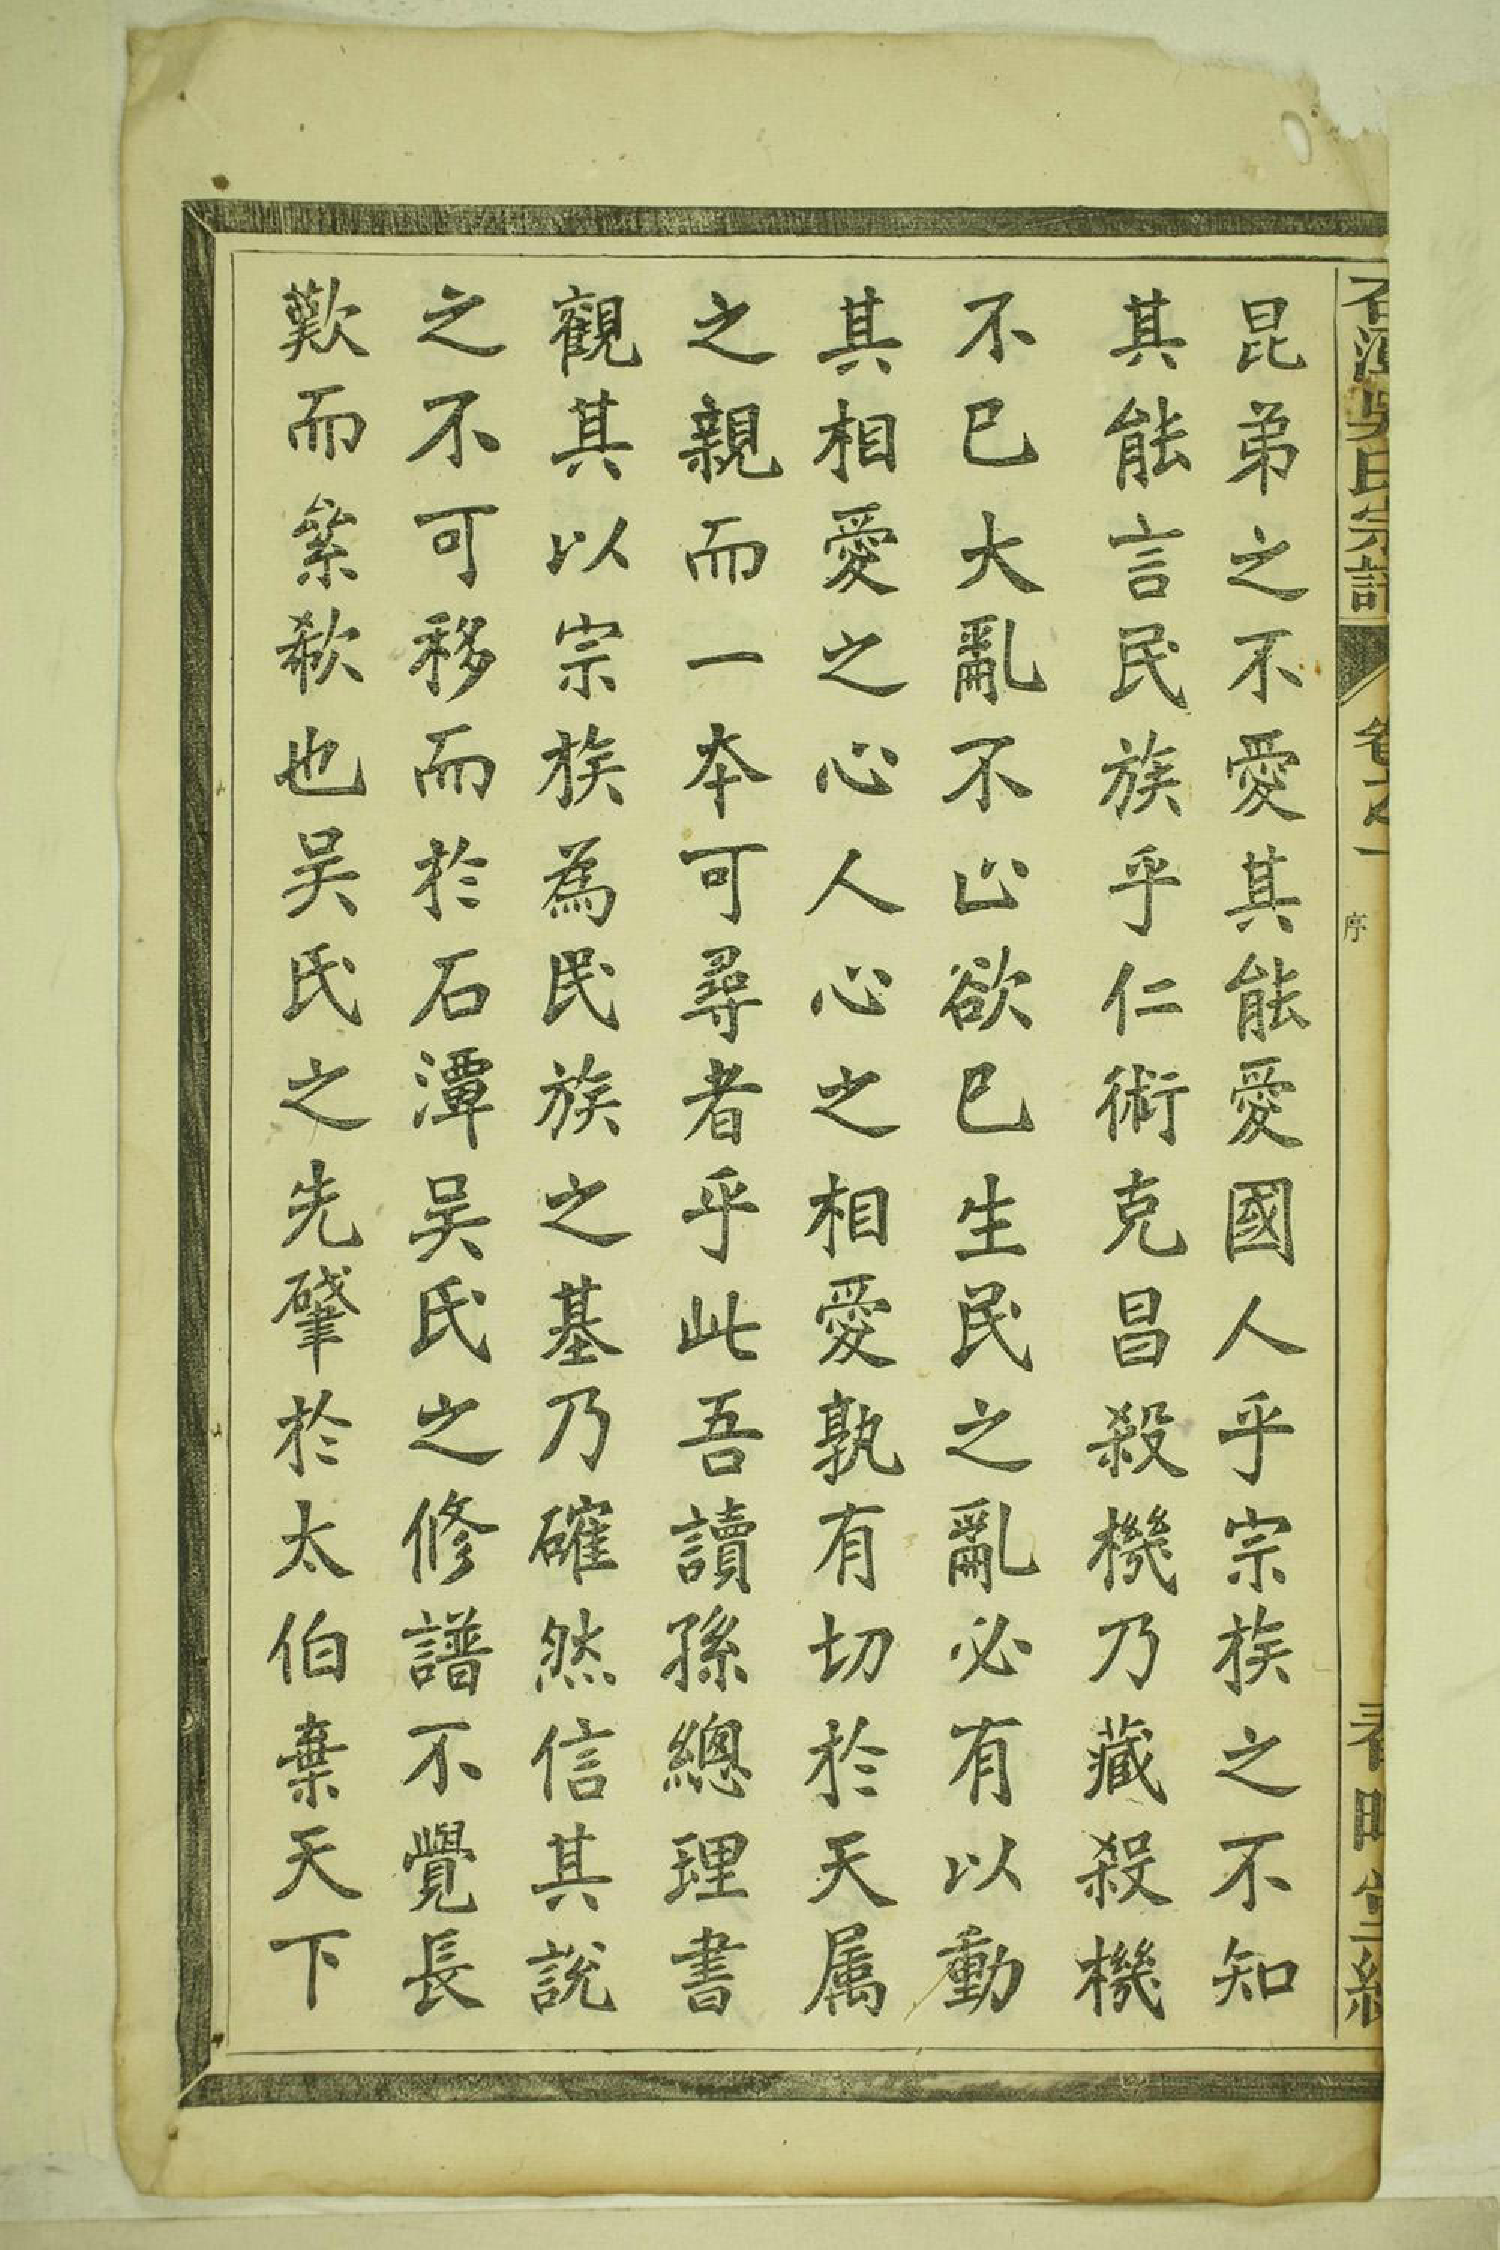 石潭吳氏宗譜 卷之一 序
昆弟之不愛其能愛國人乎宗族之不知
其能言民族乎仁術克昌殺機乃藏殺機
不已大亂不止欲已生民之亂必有以動
其相愛之心人心之相愛孰有切於天属
之親而一本可尋者乎此吾讀孫總理書
觀其以宗族為民族之基乃確然信其說
之不可移而於石潭吳氏之修譜不覺長
歎而縈欷也吳氏之先肇於太伯棄天下